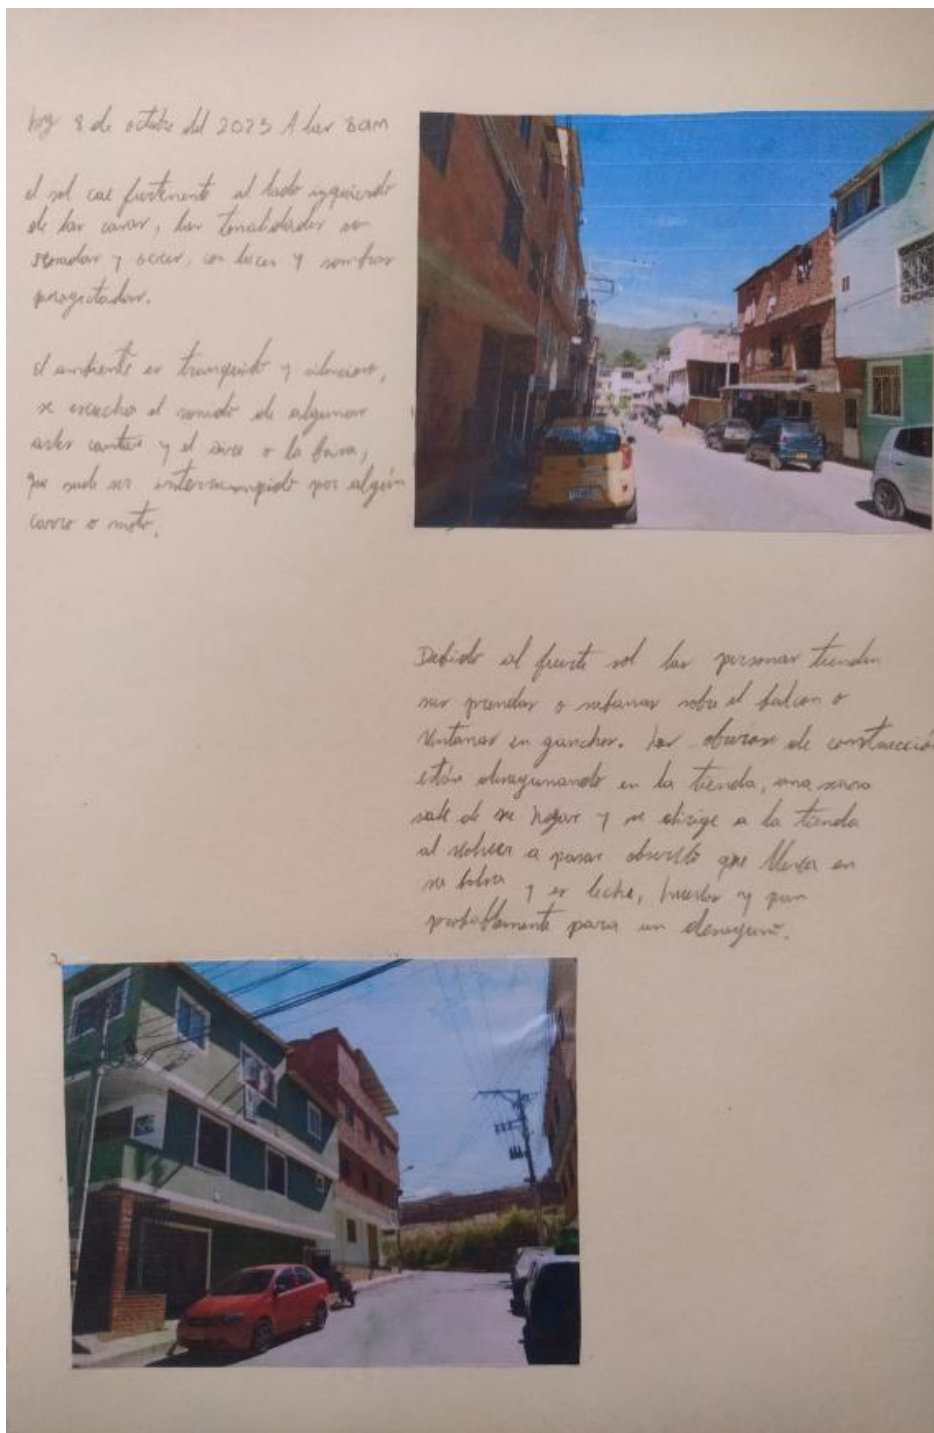 hoy 8 de octubre del 2023 A las 8am
el sol cae fuertemente al lado izquierdo
de las casas, las tonalidades son
y ocres, con luces y sombras
proyectadas.
el ambiente es tranquilo y silencioso,
se escucha el sonido de algunas
aves cantar y el aire o la brisa,
que suele ser interrumpido por algún
carro o moto.
Debido al fuerte sol las personas tienden
sus prendas o sabanas sobre el balcon o
ventanas en ganchos. Los obreros de construcción
están desayunando en la tienda, una señora
sale de su hogar y se dirige a la tienda
al volver a pasar observo que lleva en
su bolsa y es leche, huevos y pan
probablemente para un desayuno.